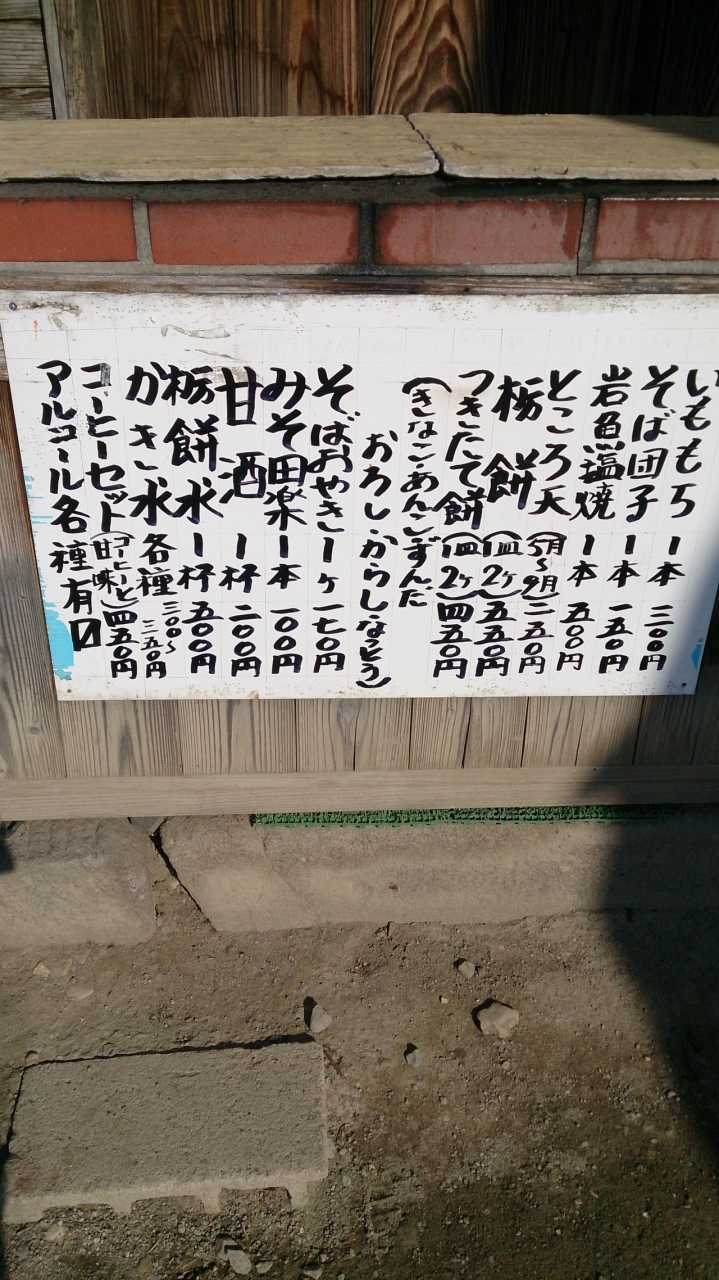 いももち 1本 二〇〇円
そば団子 1本 一五〇円
岩魚塩焼 1本 五〇〇円
ところ天 (5月~9月) 二五〇円
栃餅 (1皿2ヶ) 五五〇円
つきたて餅 (1皿2ヶ) 四五〇円
(きなこ・あんこ・ずんだ
おろし・からし・なっとう)
そばおやき 1ヶ 一七〇円
みそ田楽 1本 一〇〇円
甘酒 1杯 二〇〇円
栃餅氷 1杯 五〇〇円
かき氷各種 三〇〇~三五〇円
コーヒーセット (コーヒーと甘味) 四五〇円
アルコール各種有〼